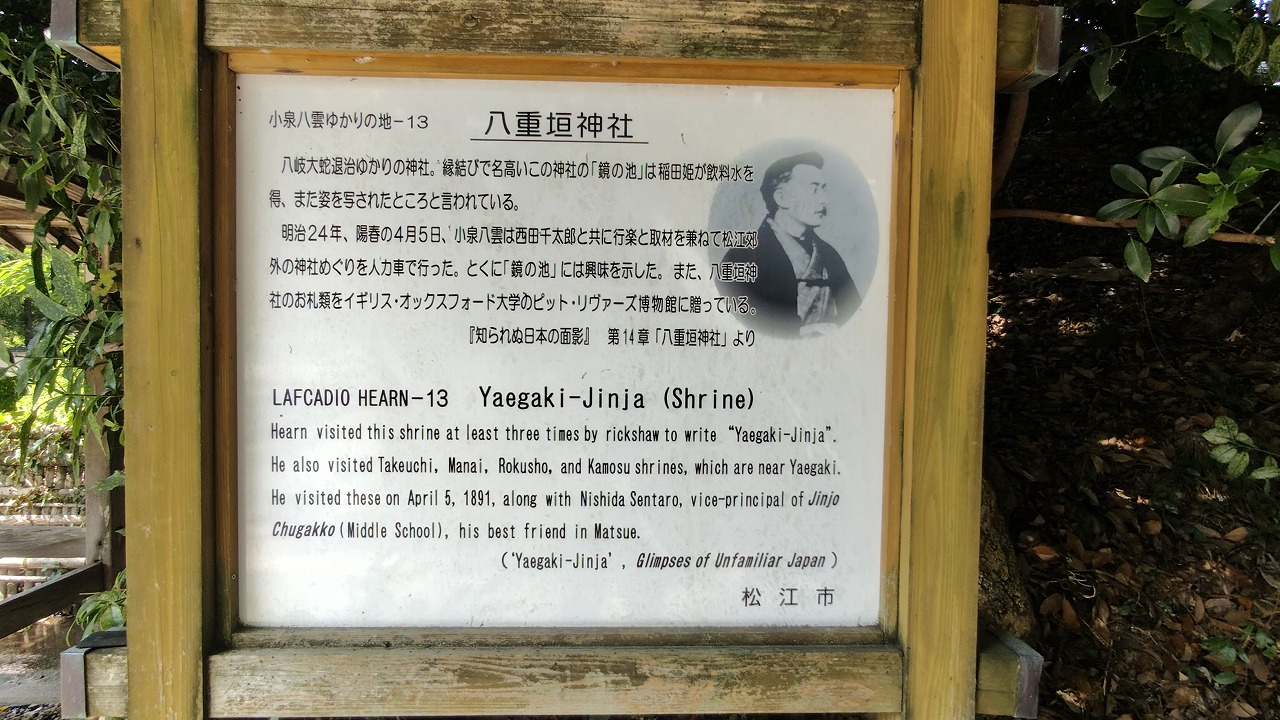 小泉八雲ゆかりの地－13 八重垣神社
八岐大蛇退治ゆかりの神社。縁結びで名高いこの神社の「鏡の池」は稲田姫が飲料水を
得、また姿を写されたところと言われている。
明治24年、陽春の4月5日、小泉八雲は西田千太郎と共に行楽と取材を兼ねて松江郊
外の神社めぐりを人力車で行った。とくに「鏡の池」には興味を示した。また、八重垣神
社のお札類をイギリス・オックスフォード大学のピット・リヴァーズ博物館に贈っている。
『知られぬ日本の面影』 第14章「八重垣神社」より
LAFCADIO HEARN－13 Yaegaki-Jinja (Shrine)
Hearn visited this shrine at least three times by rickshaw to write “Yaegaki-Jinja”.
He also visited Takeuchi, Manai, Rokusho, and Kamosu shrines, which are near Yaegaki.
He visited these on April 5, 1891, along with Nishida Sentaro, vice-principal of Jinjo
Chugakko (Middle School), his best friend in Matsue.
(‘Yaegaki-Jinja’, Glimpses of Unfamiliar Japan )
松江市